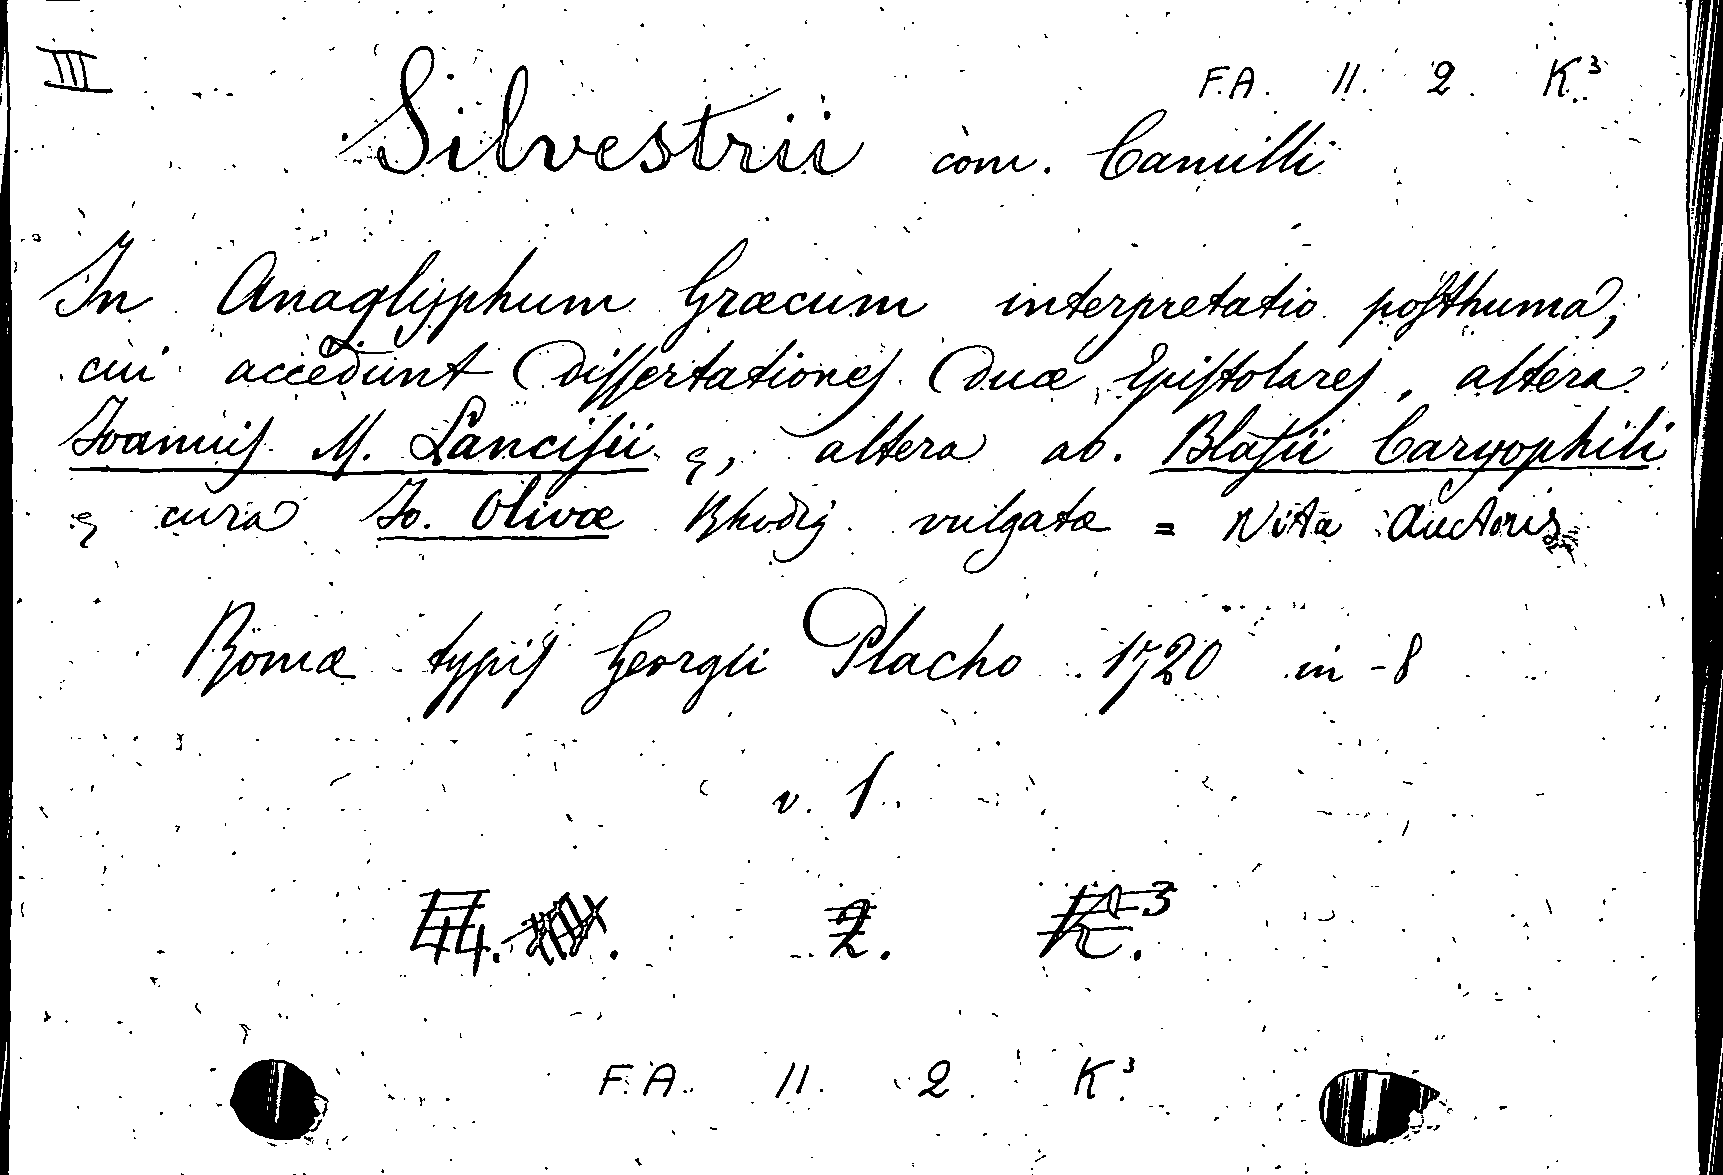 III
F.A. 11. 2. K.³
Silvestrii com. Camilli
In Anaglyphum Græcum interpretatio posthuma,
cui accedunt Dissertationes Duæ Epistolares, altera
Ioannis M. Lancisii &, altera ab. Blasii Caryophili
& cura Io. Olivæ Rhodig. vulgatæ = Vita Auctoris
Romæ typis Georgii Placho 1720 in-8
v. 1.
2. K.³
F.A. 11. 2 K³.